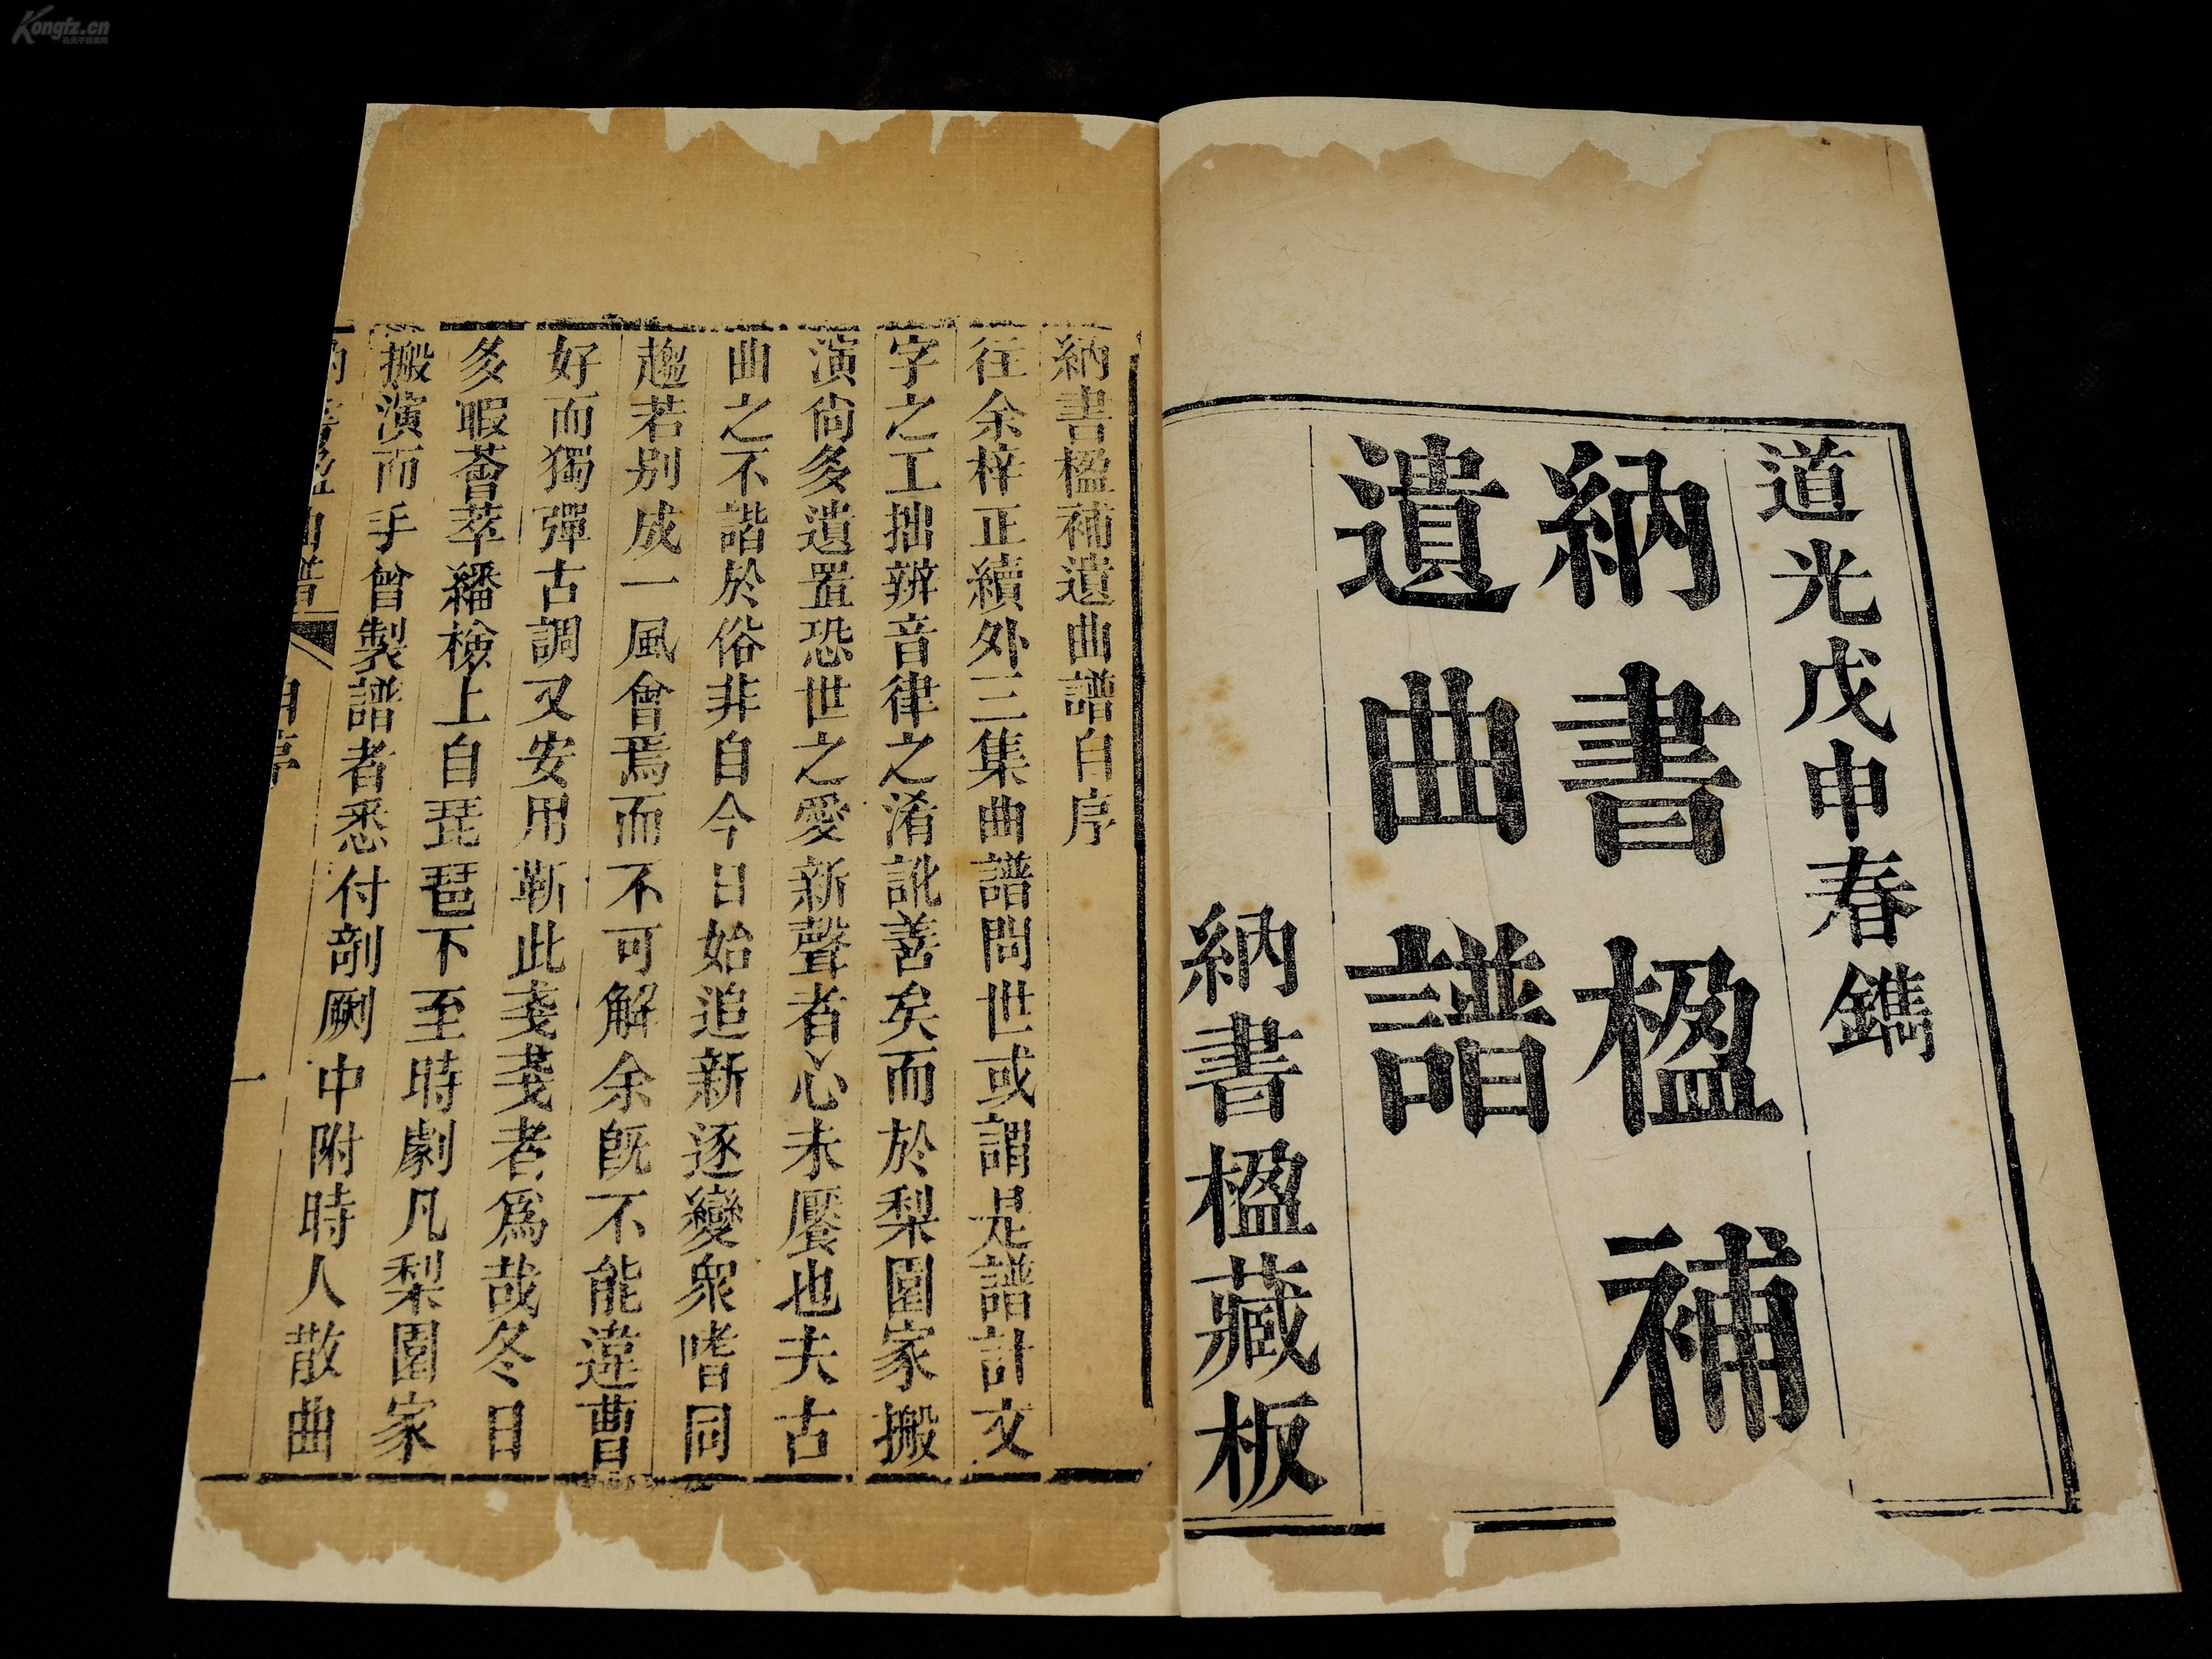 道光戊申春鐫
納書楹補
遺曲譜
納書楹藏板
納書楹補遺曲譜自序
往余梓正續外三集曲譜問世或謂是譜計文
字之工拙辨音律之淆訛善矣而於梨園家搬
演尙多遺置恐世之愛新聲者心未饜也夫古
曲之不諧於俗非自今日始追新逐變眾嗜同
趨若别成一風會焉而不可解余旣不能違曹
好而獨彈古調又安用斬此戔戔者爲哉冬日
多暇薈萃繙檢上自琵琶下至時劇凡梨園家
搬演而手曾製譜者悉付剞劂中附時人散曲
自序
一
Kongfz.cn